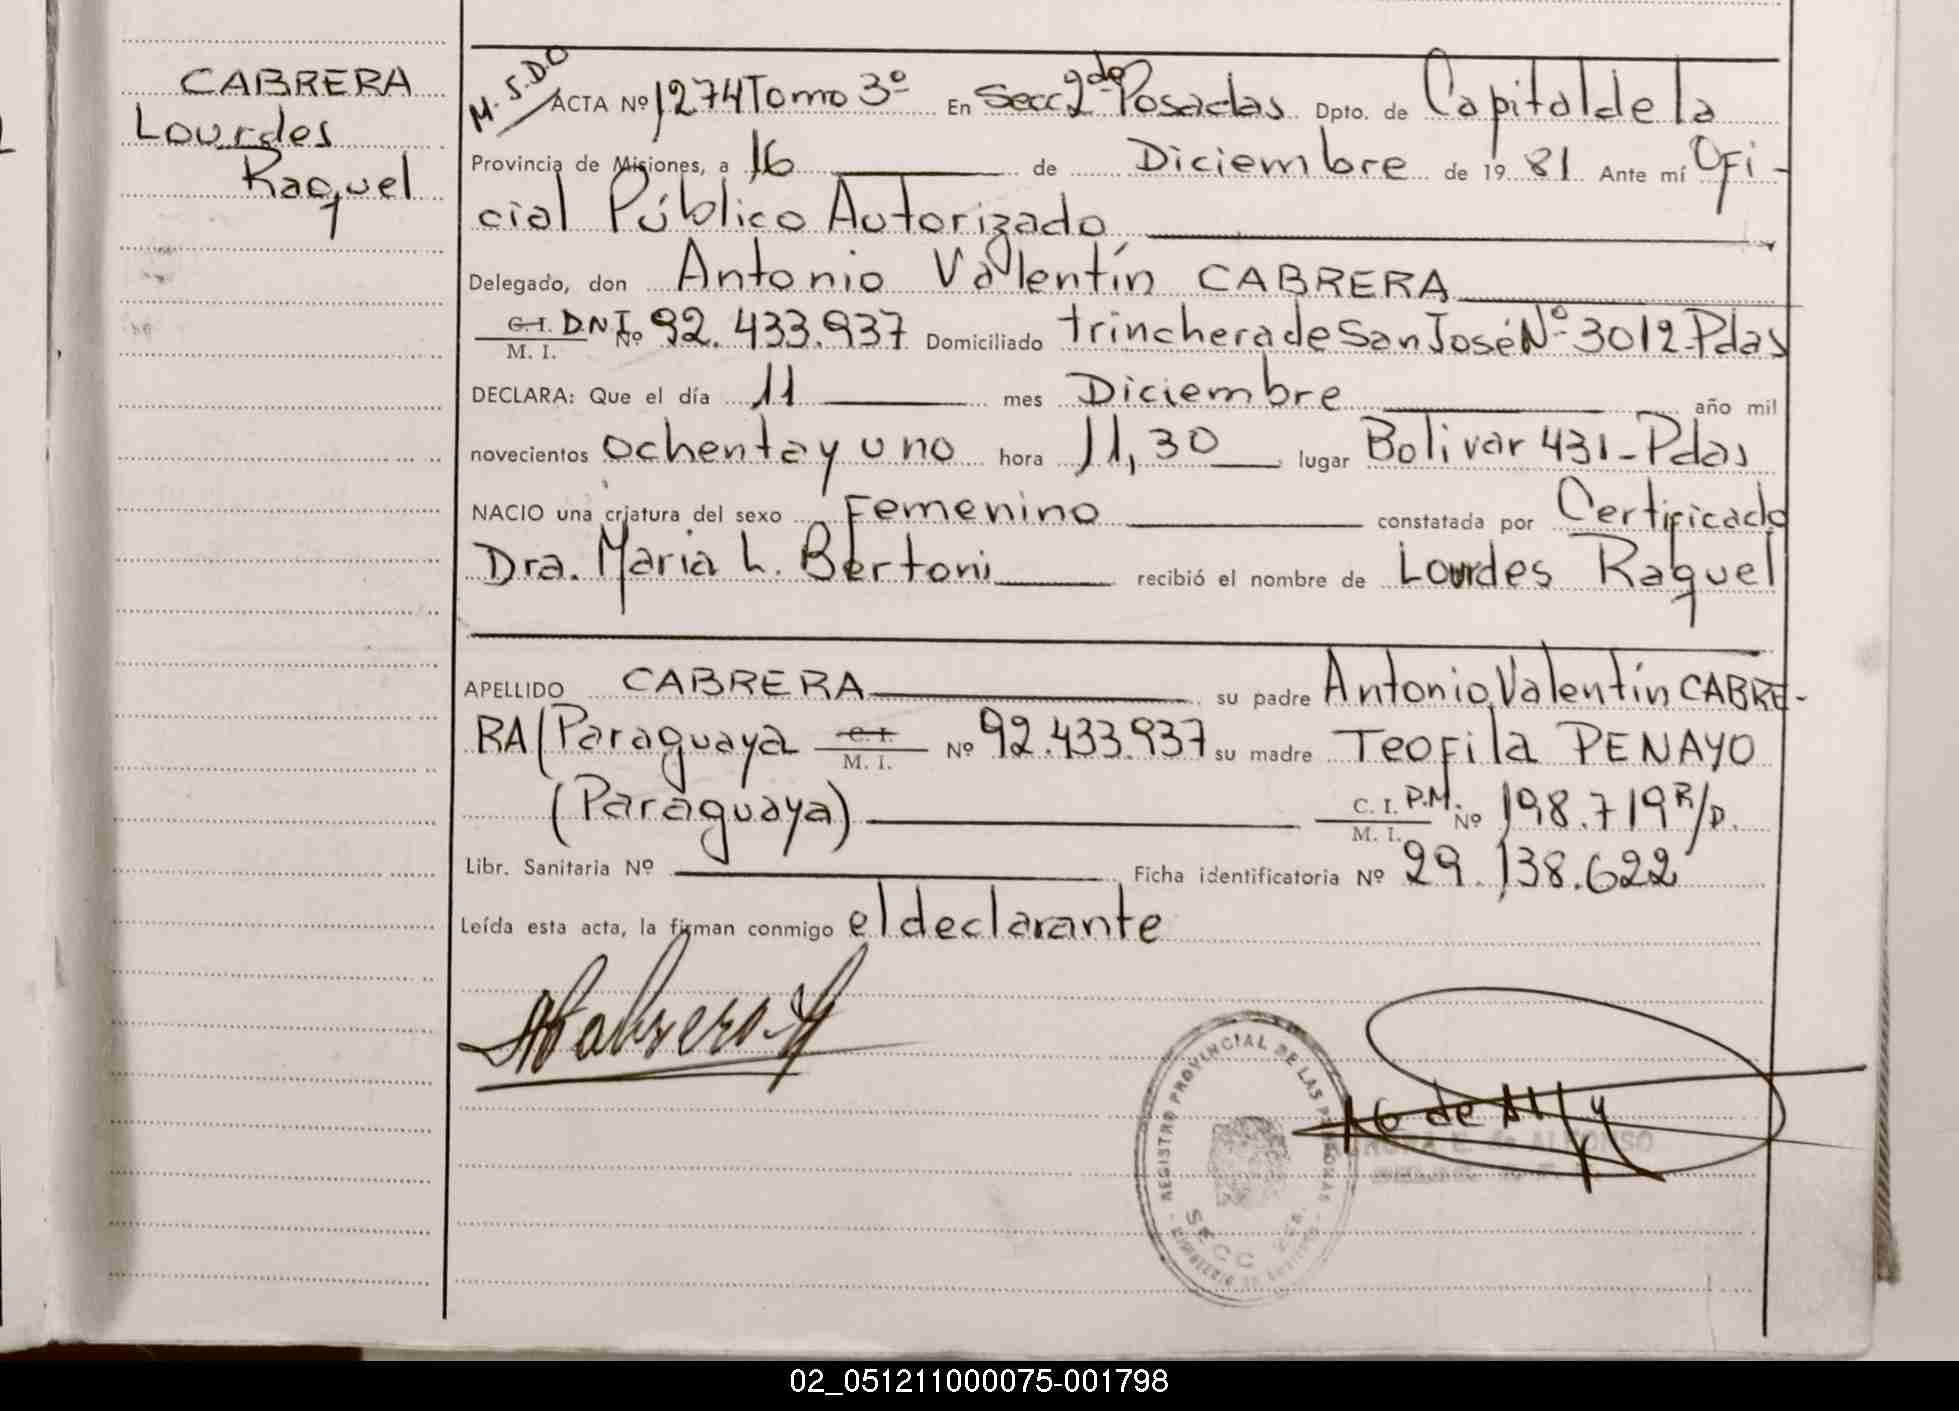 CABRERA
Lourdes
Raquel
M. S.D.O
ACTA Nº 1274 Tomo 3º En Secc 2da Posadas Dpto. de Capital de la
Provincia de Misiones, a 16 de Diciembre de 19 81 Ante mí Ofi-
cial Público Autorizado
Delegado, don Antonio Valentín CABRERA
C.I. D.N.I. Nº 92.433.937 Domiciliado trinchera de San José Nº 3012-Pdas
M. I.
DECLARA: Que el día 11 mes Diciembre año mil
novecientos ochenta y uno hora 11,30 lugar Bolivar 431-Pdas
NACIO una criatura del sexo Femenino constatada por Certificado
Dra. Maria L. Bertoni recibió el nombre de Lourdes Raquel
APELLIDO CABRERA su padre Antonio Valentín CABRE-
RA (Paraguaya C.I. Nº 92.433.937 su madre Teofila PENAYO
M. I.
(Paraguaya) C. I. P.M. Nº 198.719 R/D.
M. I.
Libr. Sanitaria Nº Ficha identificatoria Nº 29.138.622
Leída esta acta, la firman conmigo el declarante
REGISTRO PROVINCIAL DE LAS PERSONAS
SECC 2da.
E. de ALFONSO
02_051211000075-001798